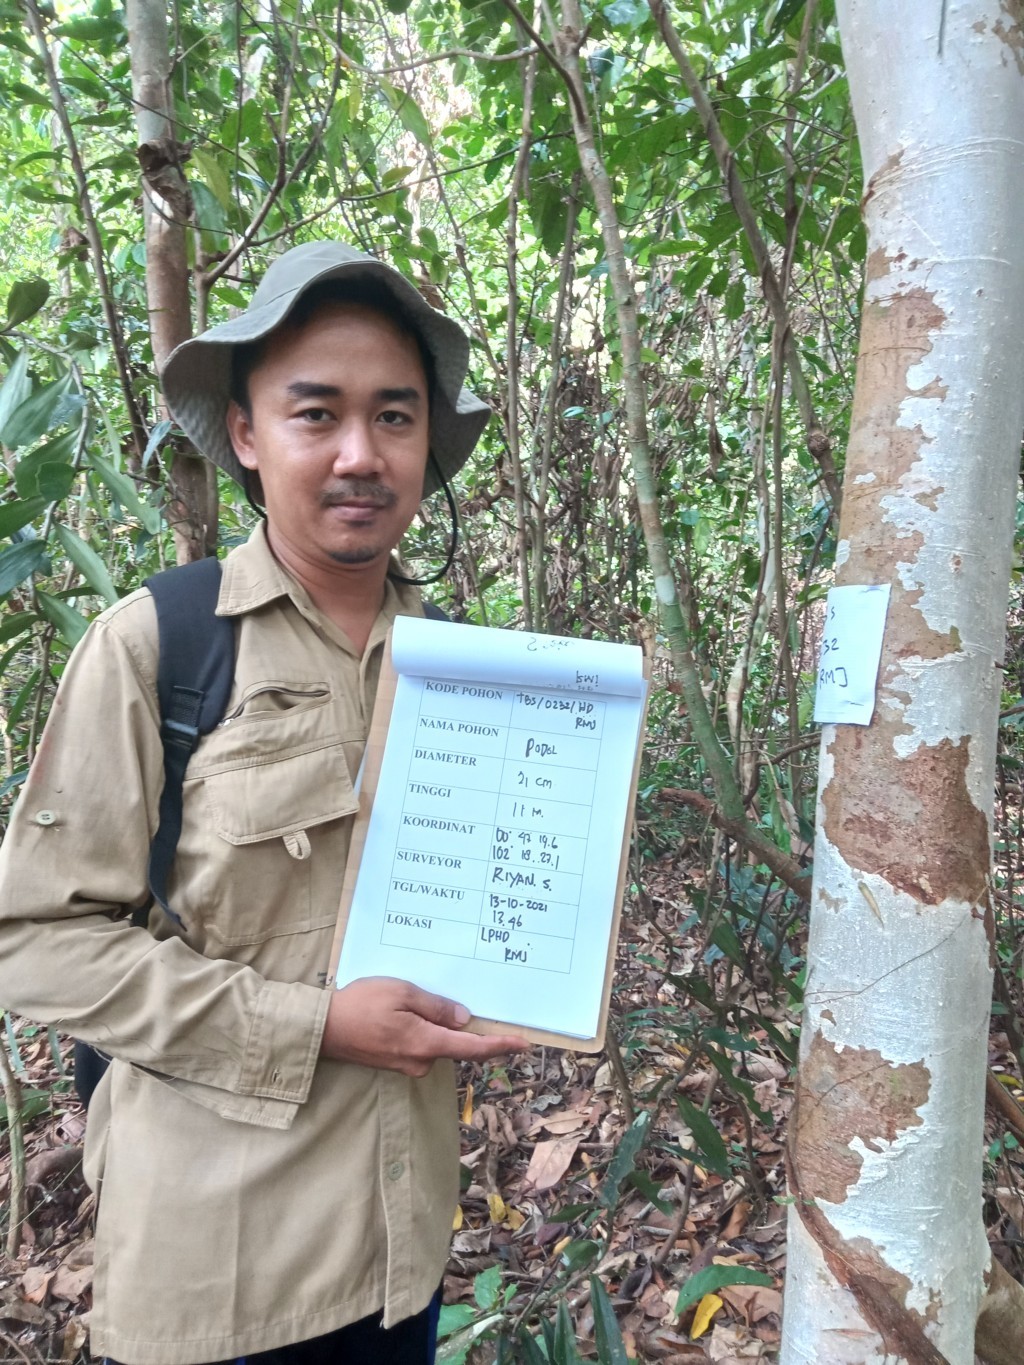 KODE POHON TBS/0232/HD
RMJ
NAMA POHON PODOL
DIAMETER 21 cm
TINGGI 11 M.
KOORDINAT 00° 47 19.6
102° 18. 27.1
SURVEYOR RIYAN. S.
TGL/WAKTU 13-10-2021
13.46
LOKASI LPHD
RMJ
S
32
RMJ